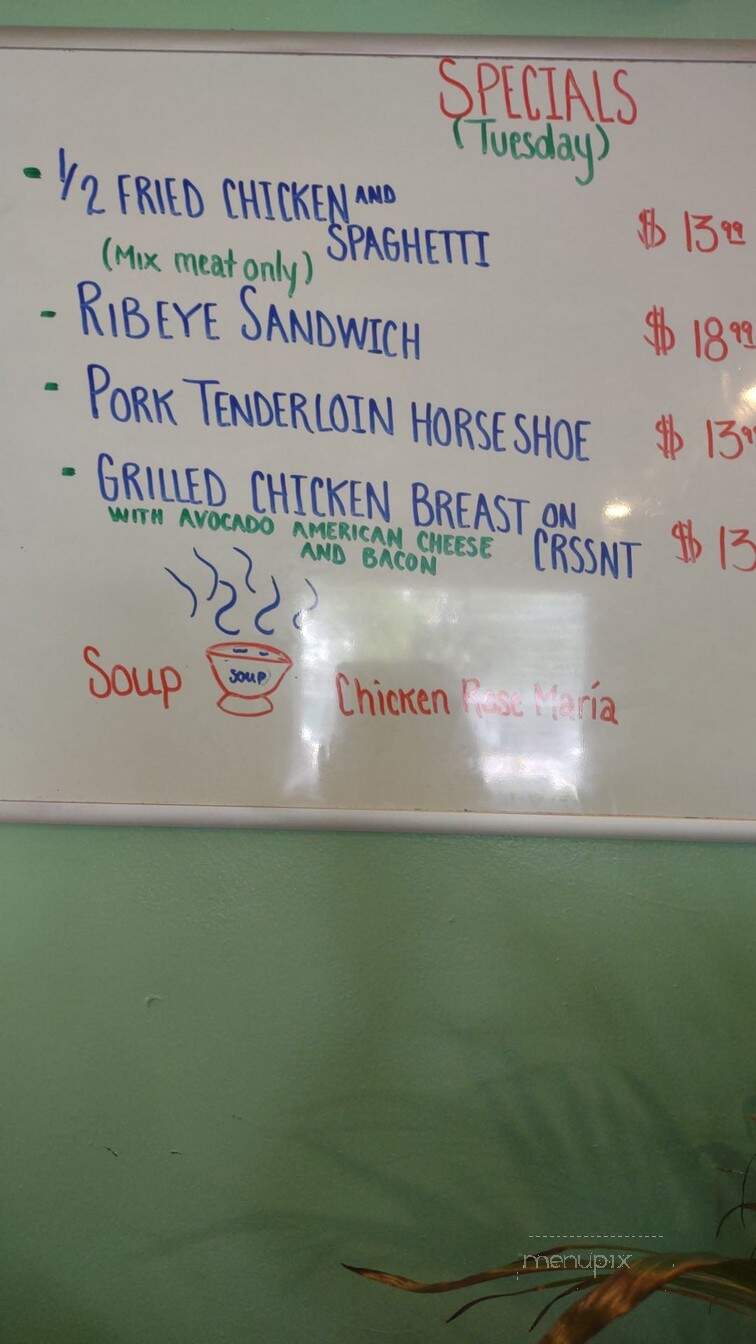 SPECIALS
(Tuesday)
- 1/2 FRIED CHICKEN AND
SPAGHETTI $ 13.99
(Mix meat only)
- RIBEYE SANDWICH $ 18.99
- PORK TENDERLOIN HORSESHOE $ 13.9
- GRILLED CHICKEN BREAST ON
CRSSNT $ 13
WITH AVOCADO AMERICAN CHEESE
AND BACON
Soup soup Chicken Rose María
menupix